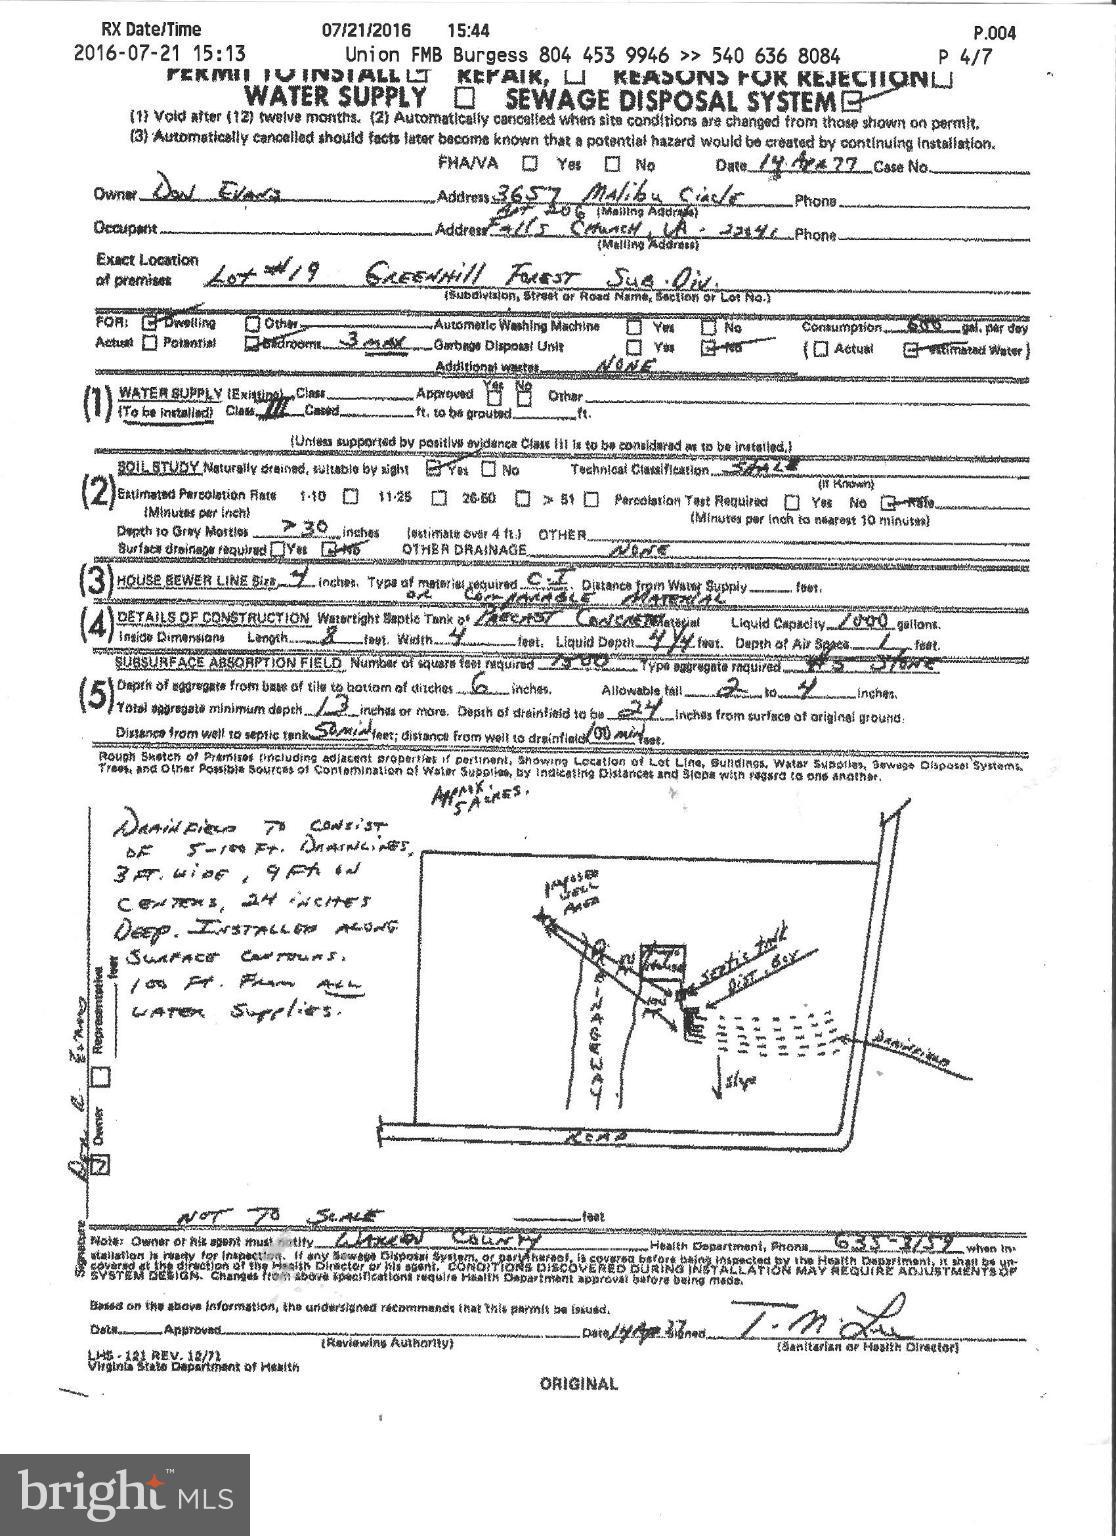 RX Date/Time 07/21/2016 15:44 P.004
2016-07-21 15:13 Union FMB Burgess 804 453 9946 >> 540 636 8084 P 4/7
PERMIT TO INSTALL REPAIR, REASONS FOR REJECTION
WATER SUPPLY SEWAGE DISPOSAL SYSTEM
(1) Void after (12) twelve months. (2) Automatically cancelled when site conditions are changed from those shown on permit.
(3) Automatically cancelled should facts later become known that a potential hazard would be created by continuing installation.
FHA/VA Yes No Date 14 Apr 77 Case No.
Owner Don Evans Address 3657 Malibu Circle Phone
Apt 206 (Mailing Address)
Occupant Address Falls Church, VA. 22041 Phone
(Mailing Address)
Exact Location
of premises Lot #19 Greenhill Forest Sub.Div.
(Subdivision, Street or Road Name, Section or Lot No.)
FOR: Dwelling Other Automatic Washing Machine Yes No Consumption 600 gal. per day
Actual Potential Bedrooms 3 max Garbage Disposal Unit Yes No ( Actual Estimated Water)
Additional wastes NONE
(1) WATER SUPPLY (Existing) Class Approved Yes No Other
(To be installed) Class III Cased ft. to be grouted ft.
(Unless supported by positive evidence Class III is to be considered as to be installed.)
(2) SOIL STUDY Naturally drained, suitable by sight Yes No Technical Classification SHALE
(If Known)
Estimated Percolation Rate 1-10 11-25 26-50 > 51 Percolation Test Required Yes No Rate
(Minutes per inch) (Minutes per inch to nearest 10 minutes)
Depth to Grey Mottles >30 inches (estimate over 4 ft.) OTHER
Surface drainage required Yes No OTHER DRAINAGE NONE
(3) HOUSE SEWER LINE Size 4 inches. Type of material required C.I. Distance from Water Supply feet.
OR COMPARABLE MATERIAL
(4) DETAILS OF CONSTRUCTION Watertight Septic Tank of PRECAST CONCRETE Material Liquid Capacity 1000 gallons.
Inside Dimensions Length 8 feet. Width 4 feet. Liquid Depth 4 1/4 feet. Depth of Air Space 1 feet.
(5) SUBSURFACE ABSORPTION FIELD Number of square feet required 1500 Type aggregate required #3 STONE
Depth of aggregate from base of tile to bottom of ditches 6 inches. Allowable fall 2 to 4 inches.
Total aggregate minimum depth 13 inches or more. Depth of drainfield to be 24 inches from surface of original ground.
Distance from well to septic tank 50 min feet; distance from well to drainfield 100 min feet.
Rough Sketch of Premises (including adjacent properties if pertinent, Showing Location of Lot Line, Buildings, Water Supplies, Sewage Disposal Systems,
Trees, and Other Possible Sources of Contamination of Water Supplies, by Indicating Distances and Slope with regard to one another.
Approx.
5 Acres.
DRAINFIELD TO CONSIST
OF 5-100 FT. DRAINLINES,
3 FT. WIDE, 9 Ft. ON
CENTERS, 24 INCHES
DEEP. INSTALLED ALONG
SURFACE CONTOURS.
100 FT. FROM ALL
WATER SUPPLIES.
WELL
AREA
DRAINAGEWAY
SEPTIC TANK
DIST. BOX
DRAINFIELD
Slope
ROAD
Signature Don R. Evans
Owner Representative feet
NOT TO SCALE feet
Note: Owner or his agent must notify Warren County Health Department, Phone 635-3159 when in-
stallation is ready for inspection. If any Sewage Disposal System, or part thereof, is covered before being inspected by the Health Department, it shall be un-
covered at the direction of the Health Director or his agent. CONDITIONS DISCOVERED DURING INSTALLATION MAY REQUIRE ADJUSTMENTS OF
SYSTEM DESIGN. Changes from above specifications require Health Department approval before being made.
Based on the above information, the undersigned recommends that this permit be issued.
Date Approved Date 14 Apr 77 Signed
(Reviewing Authority) (Sanitarian or Health Director)
LHS - 121 REV. 12/71
Virginia State Department of Health
ORIGINAL
bright MLS